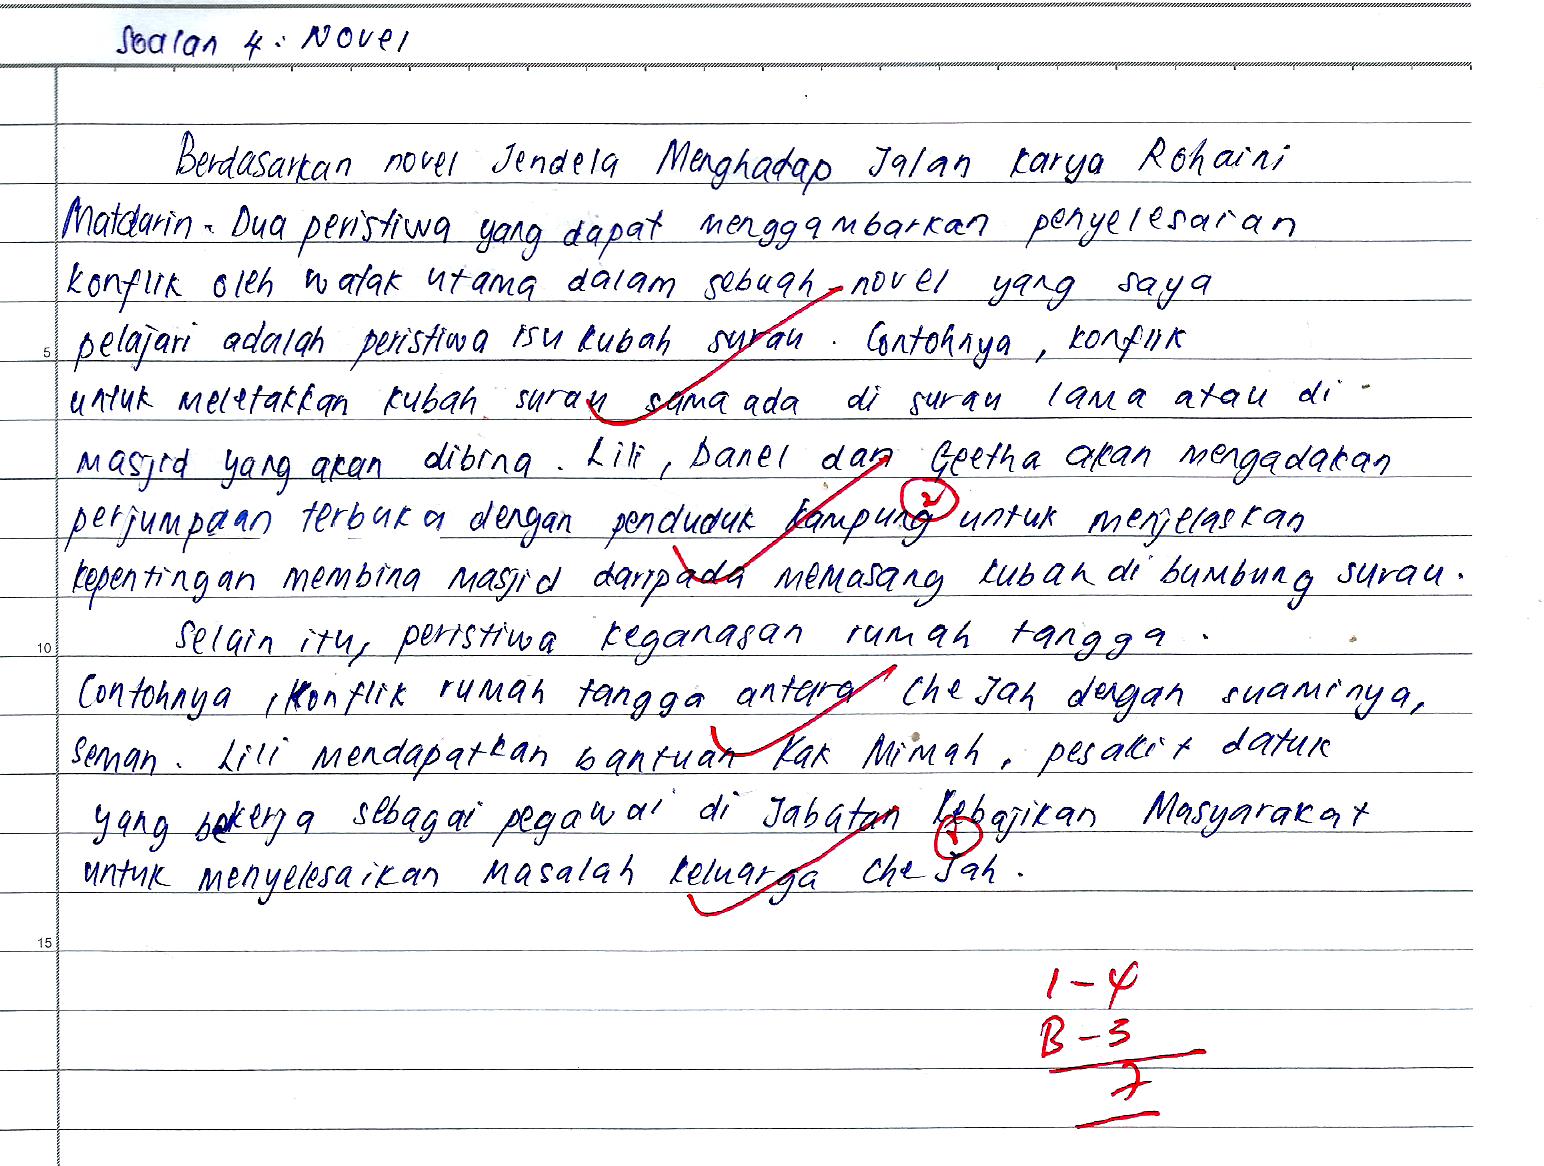 Soalan 4 : Novel
Berdasarkan novel Jendela Menghadap Jalan karya Rohaini
Matdarin. Dua peristiwa yang dapat menggambarkan penyelesaian
konflik oleh watak utama dalam sebuah novel yang saya
5 pelajari adalah peristiwa isu kubah surau. Contohnya, konflik
untuk meletakkan kubah surau sama ada di surau lama atau di
masjid yang akan dibina. Lili, Danel dan Geetha akan mengadakan
perjumpaan terbuka dengan penduduk kampung untuk menjelaskan
2
kepentingan membina masjid daripada memasang kubah di bumbung surau.
10 Selain itu, peristiwa keganasan rumah tangga.
Contohnya, konflik rumah tangga antara Che Jah dengan suaminya,
Seman. Lili mendapatkan bantuan Kak Mimah, pesakit datuk
yang bekerja sebagai pegawai di Jabatan Kebajikan Masyarakat
untuk menyelesaikan masalah keluarga Che Jah.
15
1 - 4
B - 3
7